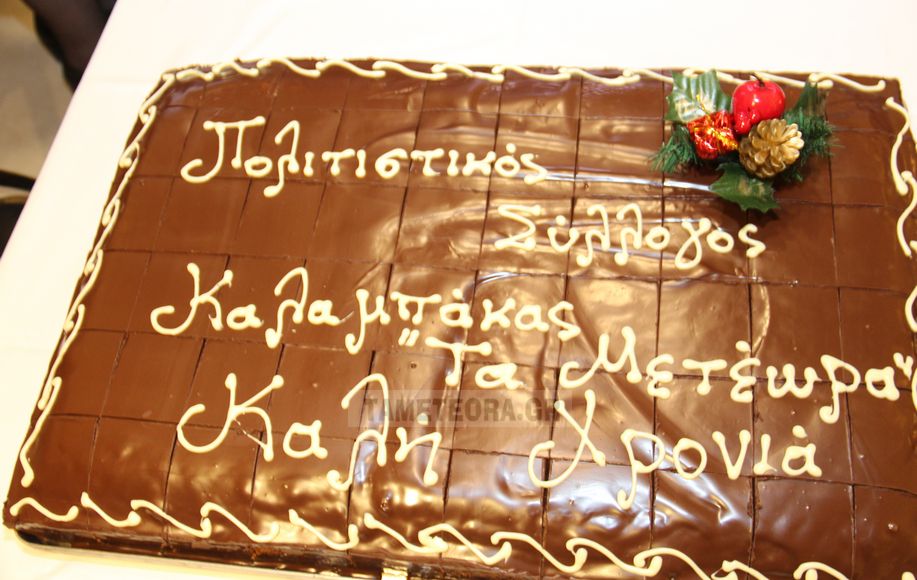 Πολιτιστικός
Σύλλογος
Καλαμπάκας
"Τα Μετέωρα"
Καλή Χρονιά
TAMETEORA.GR